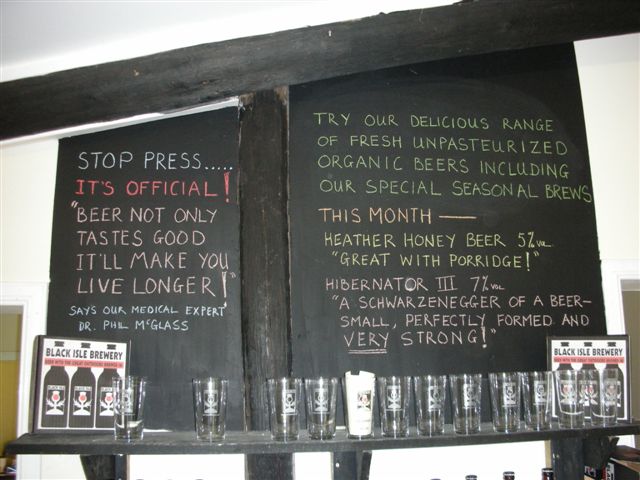 STOP PRESS.....
IT'S OFFICIAL!
"BEER NOT ONLY
TASTES GOOD
IT'LL MAKE YOU
LIVE LONGER!"
SAYS OUR MEDICAL EXPERT
DR. PHIL McGLASS
TRY OUR DELICIOUS RANGE
OF FRESH UNPASTEURIZED
ORGANIC BEERS INCLUDING
OUR SPECIAL SEASONAL BREWS
THIS MONTH —
HEATHER HONEY BEER 5% VOL
"GREAT WITH PORRIDGE!"
HIBERNATOR III 7% VOL
"A SCHWARZENEGGER OF A BEER-
SMALL, PERFECTLY FORMED AND
VERY STRONG!"
BLACK ISLE BREWERY
BLACK ISLE BREWERY